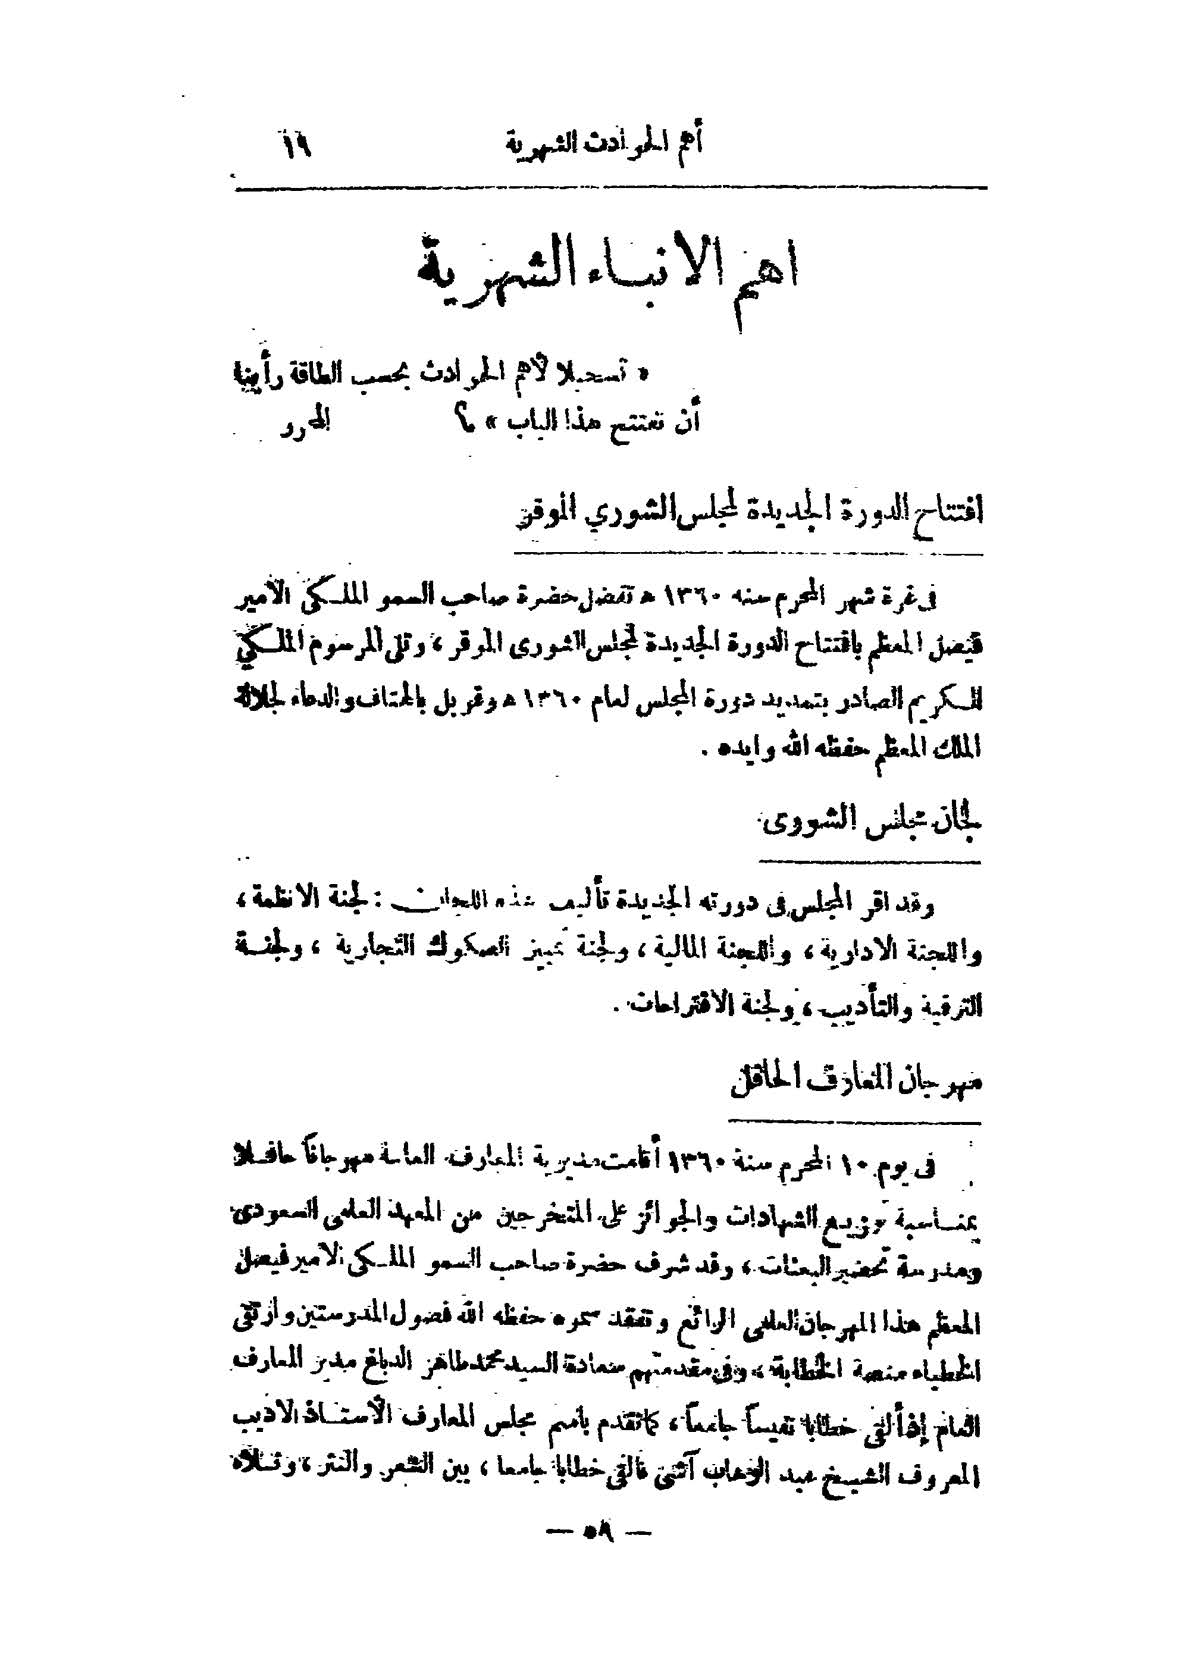 أهم الحوادث الشهرية ١٩
اهم الانباء الشهرية
« تسجيلا لأهم الحوادث بحسب الطاقة رأينا
أن نفتتح هذا الباب » ؟ المحرر
افتتاح الدورة الجديدة لمجلس الشوري الموقر
فى غرة شهر المحرم سنه ١٣٦٠ ه تفضل حضرة صاحب السمو الملكى الامير
فيصل المعظم بافتتاح الدورة الجديدة لمجلس الشورى الموقر ، وتلى المرسوم الملكي
الكريم الصادر بتمديد دورة المجلس لعام ١٣٦٠ ه وقوبل بالهتاف والدعاء لجلالة
الملك المعظم حفظه الله وايده .
لجان مجلس الشورى
وقد اقر المجلس فى دورته الجديدة تأليف هذه اللجان : لجنة الانظمة ،
واللجنة الادارية ، واللجنة المالية ، ولجنة تمييز الصكوك التجارية ، ولجنة
الترقية والتأديب ، ولجنة الاقتراحات .
مهرجان المعارف الحافل
فى يوم ١٠ المحرم سنة ١٣٦٠ أقامت مديرية المعارف العامة مهرجاناً حافلا
بمناسبة توزيع الشهادات والجوائز على المتخرجين من المعهد العلمى السعودى
ومدرسة تحضير البعثات ، وقد شرف حضرة صاحب السمو الملكى الامير فيصل
المعظم هذا المهرجان العلمى الرائع وتفقد سموه حفظه الله فصول المدرستين وارتقى
الخطباء منصة الخطابة ، وفى مقدمتهم سعادة السيد محمد طاهر الدباغ مدير المعارف
العام إذ ألقى خطابا نفيساً جامعاً ، كما تقدم باسم مجلس المعارف الأستاذ الاديب
المعروف الشيخ عبد الوهاب آشى فالقى خطابا جامعا ، بين الشعر والنثر ، وتلاه
— ٥٩ —